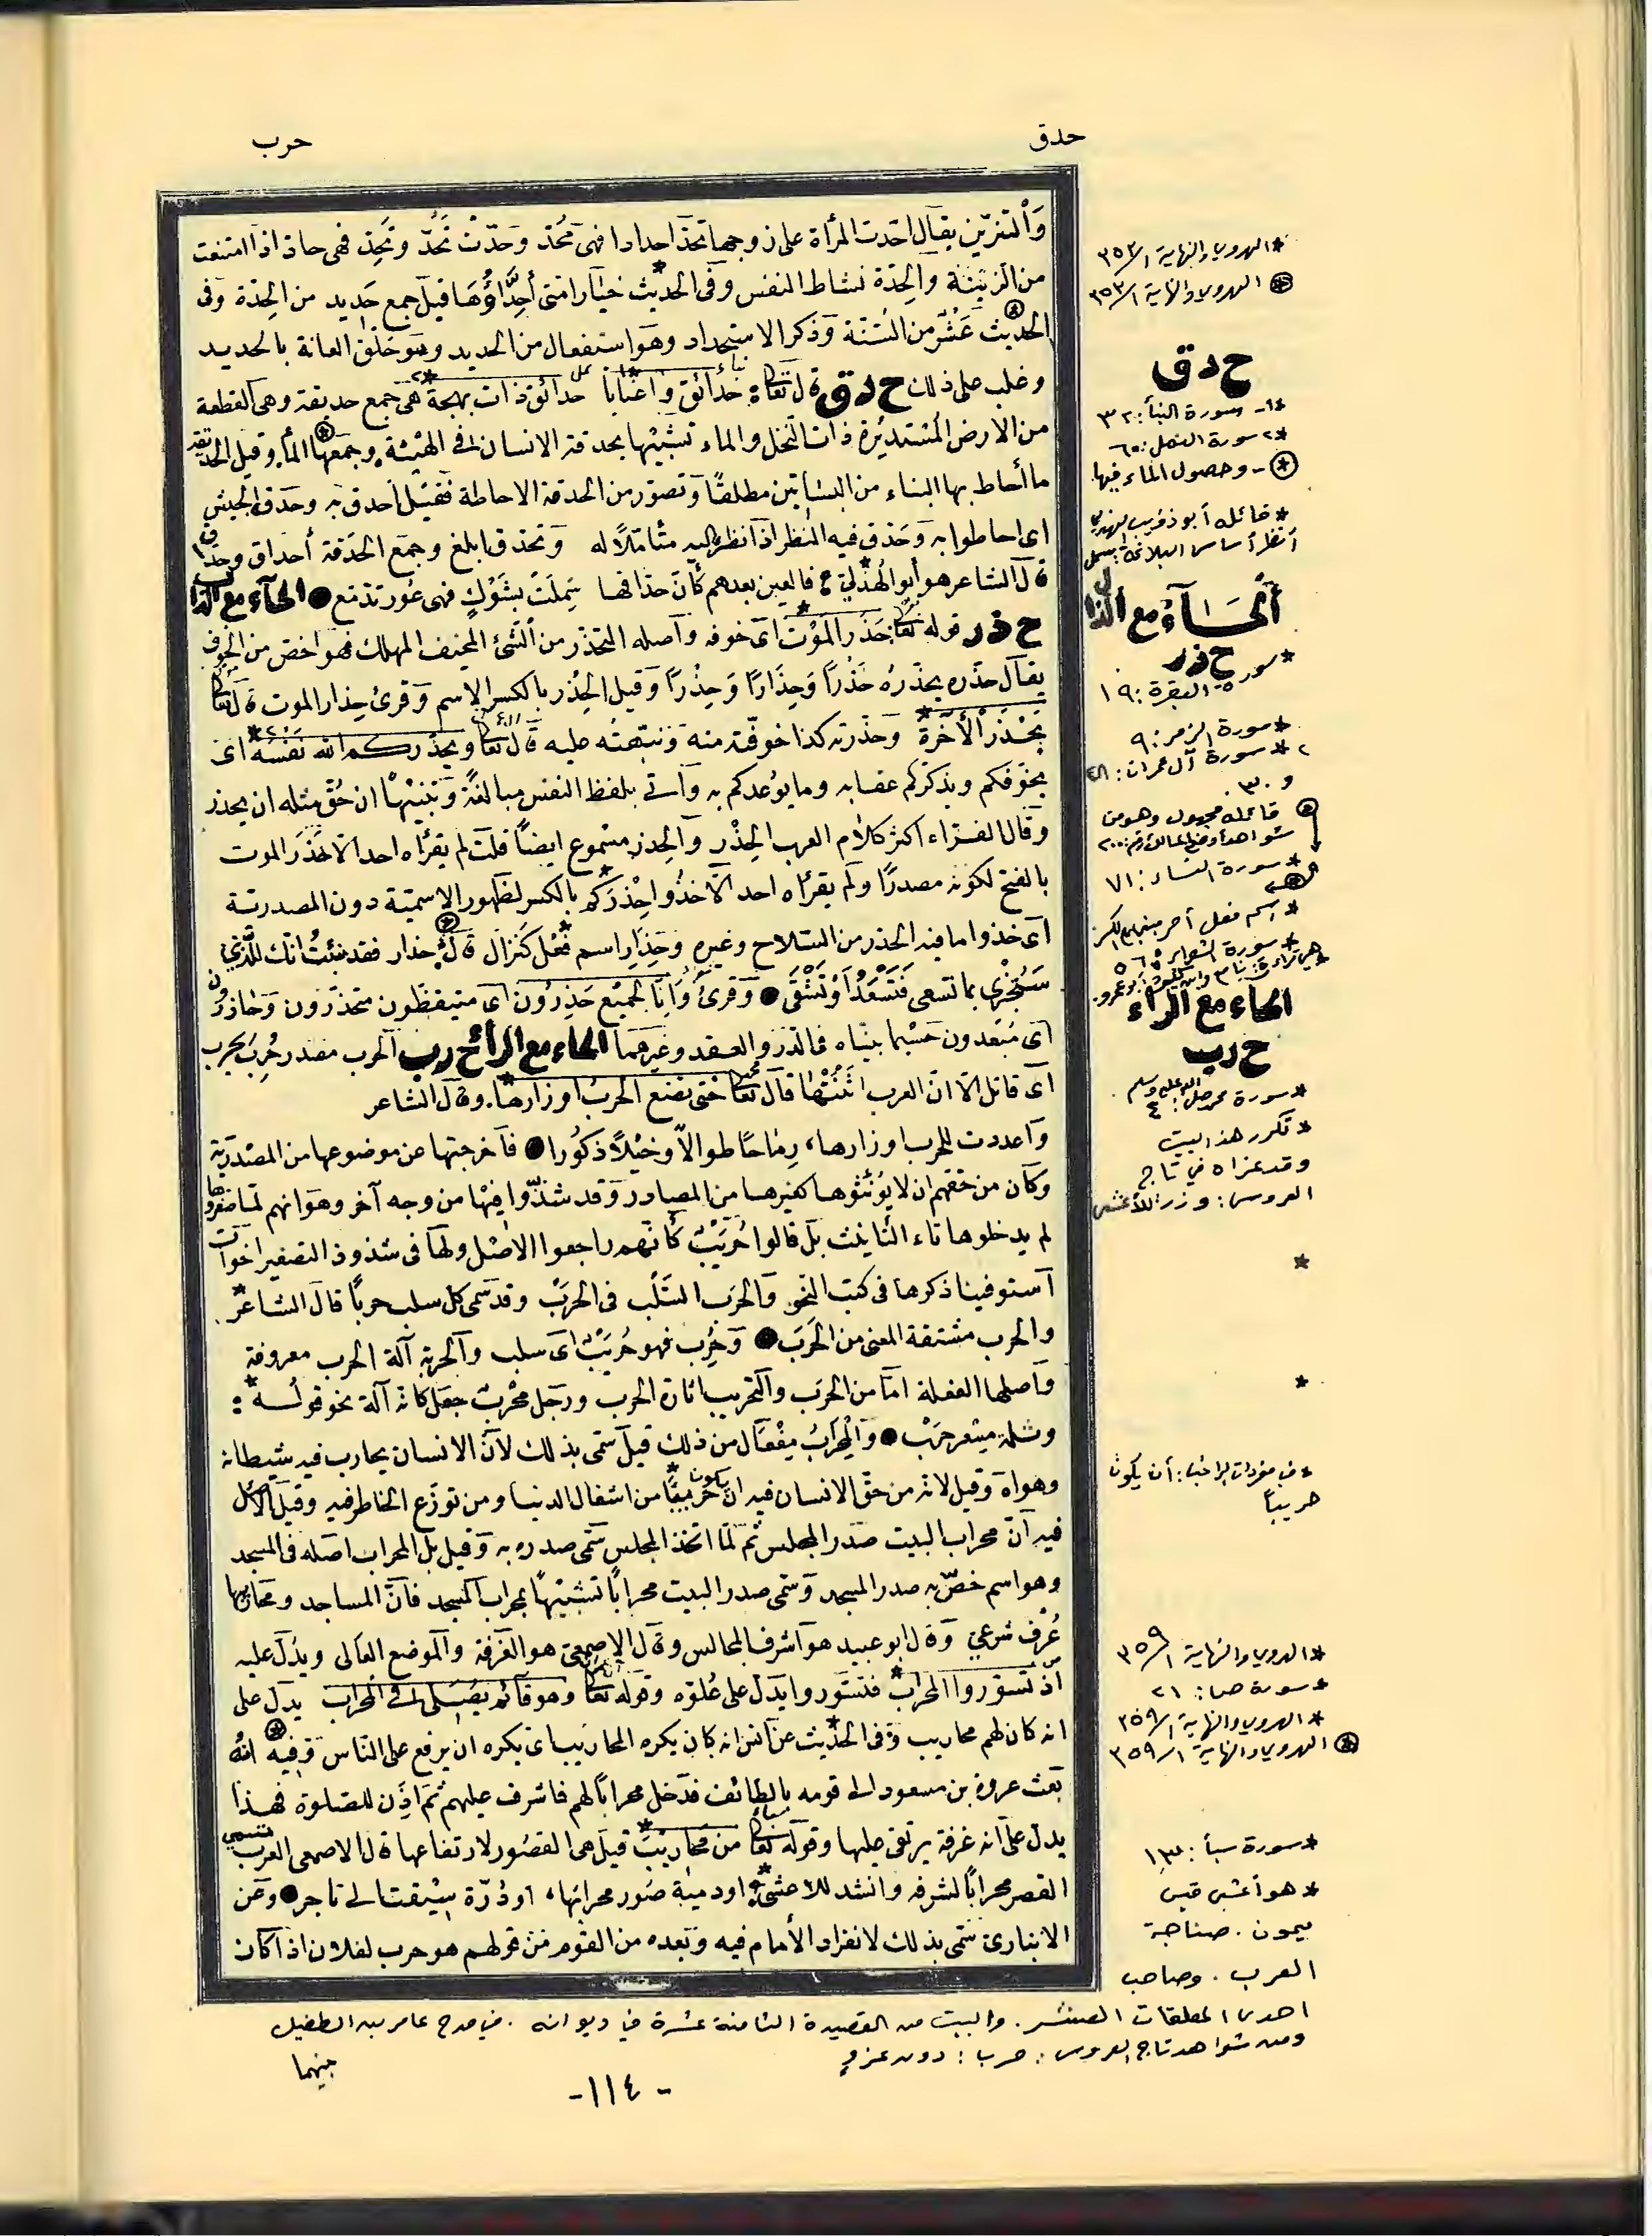 حدق
حرب
والتزين يقال احدت المرأة على زوجها تحد احدادا فهى محد وحدت تحد وتحد فهى حاد اذا امتنعت
من الزينة والحدة نشاط النفس وفى الحديث خيار امتى أحداؤها قيل جمع حديد من الحدة وفى
الحديث عشر من السنة وذكر الاستحداد وهو استفعال من الحديد وهو حلق العانة بالحديد
وغلب على ذلك ح د ق قال تعالى حدائق واعنابا حدائق ذات بهجة هى جمع حديقة وهى القطعة
من الارض المستديرة ذات النخل والماء تشبيها بحدقة الانسان فى الهيئة وجمعها الماء وقيل الحديقة
ما أحاط بها البناء من البساتين مطلقا وتصور من الحدقة الاحاطة فقيل احدق به وحدق الجيش
اى احاطوا به وحدق فيه النظر اذا نظر اليه متأملا له وتحدق ابلغ وجمع الحدقة أحداق وحداق
قال الشاعر هو أبو الهذلي فالعين بعدهم كأن حداقها سملت بشوك فهى عور تدمع الحاء مع الذال
ح ذ ر قوله تعالى حذر الموت اى خوفه وأصله التحذر من الشئ المخيف المهلك فهو اخص من الخوف
يقال حذره يحذره حذرا وحذارا وحذرا وقيل الحذر بالكسر الاسم وقرئ حذار الموت قال تعالى
يحذر الآخرة وحذرته كذا خوفته منه ونبهته عليه قال تعالى ويحذركم الله نفسه اى
يخوفكم ويذكركم عقابه وما يوعدكم به وأتى بلفظ النفس مبالغة وتنبيها ان حق مثله ان يحذر
وقال الفراء اكثر كلام العرب الحذر والحذر مسموع ايضا قلت لم يقرأه احد الا حذر الموت
بالفتح لكونه مصدرا ولم يقرأه احد الا خذوا حذركم بالكسر لظهور الاسمية دون المصدرية
اى خذوا ما فيه الحذر من السلاح وغيره وحذار اسم فعل كنزال قال حذار فقد نبئت انك للذي
ستجزى بما تسعى فتسعد أو تشقى وقرئ وانا لجميع حذرون اى متيقظون متحذرون وحاذرون
اى مبعدون حسبما بيناه فى الدر والعقد وغيرهما الحاء مع الراء ح ر ب الحرب مصدر حرب يحرب
اى قاتل الا ان العرب انثتها قال تعالى حتى تضع الحرب اوزارها. وقال الشاعر
واعددت للحرب اوزارها، رماحا طوالا وخيلا ذكورا فأخرجتها عن موضوعها من المصدرية
وكان من حقهم ان لا يؤنثوها كغيرها من المصادر وقد شذوا فيها من وجه آخر وهو انهم لما صغروها
لم يدخلوها تاء التأنيث بل قالوا حريب كأنهم راجعوا الاصل ولها فى شذوذ التصغير اخوات
استوفينا ذكرها فى كتب النحو والحرب السلب فى الحرب وقد سمى كل سلب حربا قال الشاعر
والحرب مشتقة المعنى من الحرب وحرب فهو حريب اى سلب والحربة آلة الحرب معروفة
وأصلها الفعلة اما من الحرب والتحريب اثارة الحرب ورجل محرب جعل كانه آلة نحو قوله :
وشلة مسعر حرب والمحراب مفعال من ذلك قيل سمى بذلك لأن الانسان يحارب فيه شيطانه
وهواه وقيل لانه من حق الانسان فيه ان يكون حريبا من اشغال الدنيا ومن توزع الخاطر فيه وقيل الاصل
فيه أن محراب البيت صدر المجلس ثم لما اتخذ المجلس سمى صدره به وقيل بل المحراب اصله فى المسجد
وهو اسم خص به صدر المسجد وسمى صدر البيت محرابا تشبيها بمحراب المسجد فان المساجد ومحاريبها
عرف شرعي وقال ابو عبيد هو اشرف المجالس وقال الاصمعى هو الغرفة والموضع العالى ويدل عليه
اذ تسوروا المحراب فتسوروا يدل على علوه وقوله تعالى وهو قائم يصلى فى المحراب يدل على
انه كان لهم محاريب وفى الحديث عن انس انه كان يكره المحاريب اى يكره ان يرفع على الناس وفيه انه
بعث عروة بن مسعود الى قومه بالطائف فدخل محرابا لهم فاشرف عليهم ثم اذن للصلوة فهذا
يدل على انه غرفة يرتقى عليها وقوله تعالى من محاريب قيل هى القصور لارتفاعها قال الاصمعى العرب تسمى
القصر محرابا لشرفه وانشد للاعشى اودمية صور محرابها، او درة سيقت الى تاجر وعن
الانبارى سمى بذلك لانفراد الأمام فيه وبعده من القوم من قولهم هو حرب لفلان اذا كان
بينهما
* الهروي والنهاية ١/٣٥٣
⊛ الهروي والنهاية ١/٣٥٣
ح د ق
*١- سورة النبأ: ٣٢
*٢ سورة النمل: ٦٠
⊛ - وحصول الماء فيها
* قائله أبو ذؤيب الهذلي
أنظر أساس البلاغة: سمل
الحاء مع الذال
ح ذ ر
* سورة البقرة: ١٩
* سورة الزمر: ٩
٢* سورة آل عمران: ٢٨
و ٣٠
⊛ قائله مجهول وهو من
شواهد أوضح المسالك رقم: ٢٠٠
* سورة النساء: ٧١
* اسم فعل أمر مبني على الكسر
* سورة الشعراء: ٥٦
الحاء مع الراء
ح ر ب
* سورة محمد صلى الله عليه وسلم: ٤
* تكرر هذا البيت
وقد عزاه في تاج
العروس: وزر للأعشى
*
*
* في مفردات الراغب: أن يكون
حريباً
* الهروي والنهاية ١/٣٥٩
* سورة ص: ٢١
* الهروي والنهاية ١/٣٥٩
⊛ الهروي والنهاية ١/٣٥٩
* سورة سبأ: ١٣
* هو أعشى قيس
ميمون. صناجة
العرب. وصاحب
احدى المعلقات العشر. والبيت من القصيدة الثامنة عشرة في ديوانه. في مدح عامر بن الطفيل
ومن شواهد تاج العروس: حرب: دون عزو
-١١٤-